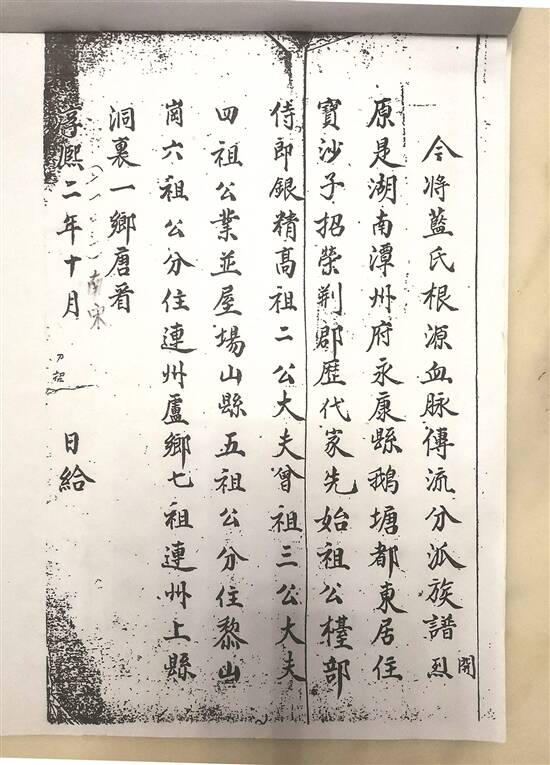 今将藍氏根源血脉傳流分派族譜烈開
原是湖南潭州府永康縣鵝塘都東居住
寶沙子招榮荆郡歴代家先始祖公檯部
侍郎銀精髙祖二公大夫曾祖三公大夫
四祖公業並屋場山縣五祖公分住黎山
崗六祖公分住連州盧鄉七祖連州上縣
洞裏一鄉唐看
淳熙二年十月 日給
南宋